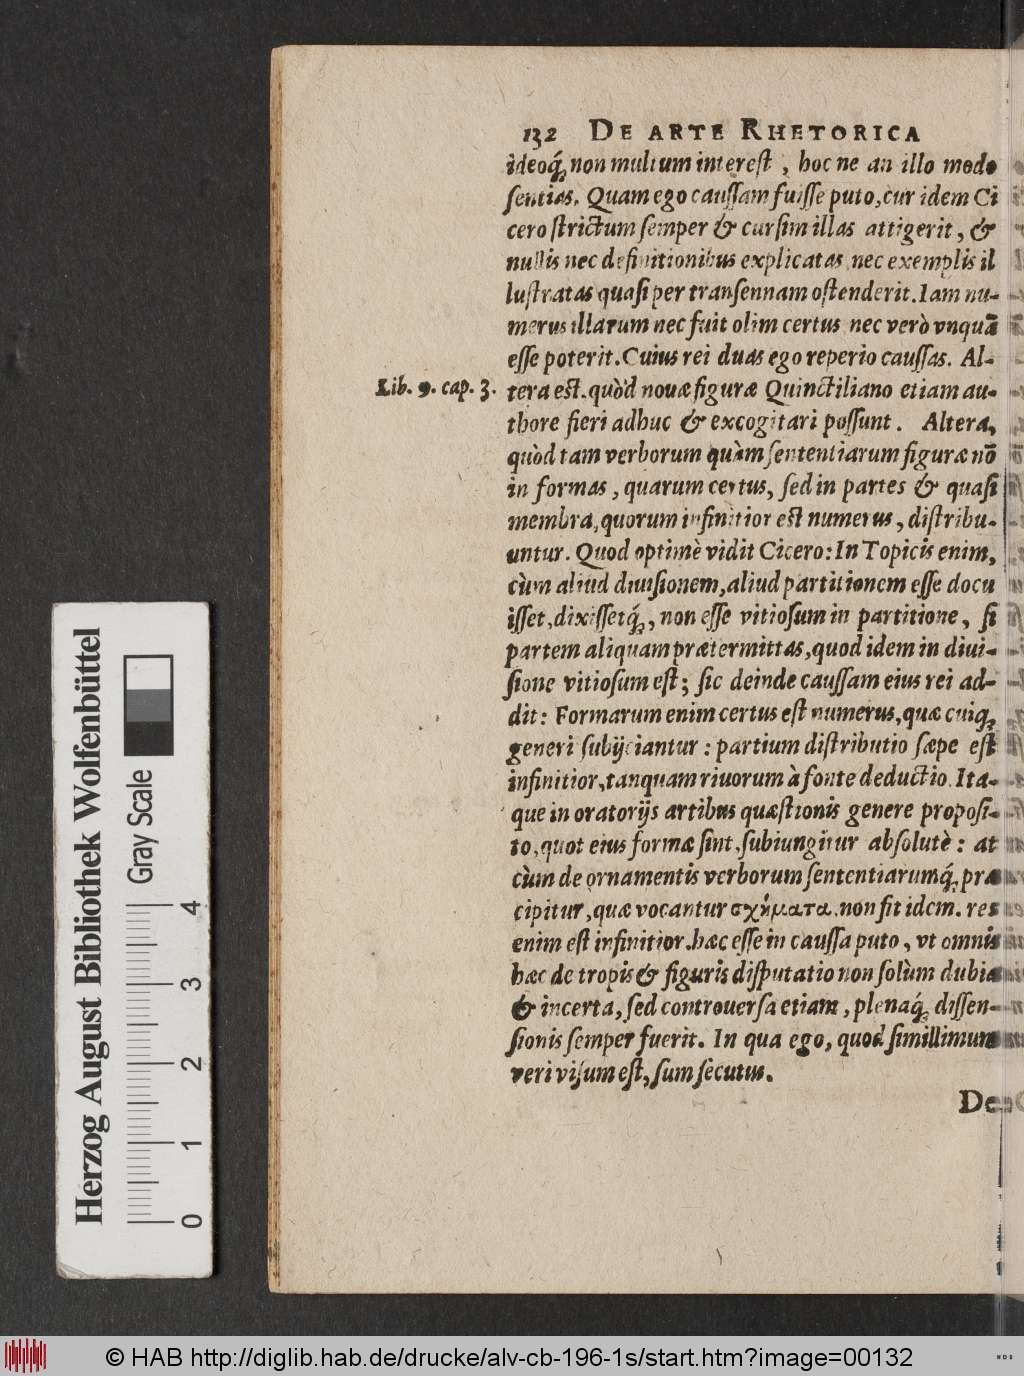 132 DE ARTE RHETORICA
ideoq́; non multum interest, hoc ne an illo modo
sentias. Quam ego caussam fuisse puto, cur idem Ci
cero strictum semper & cursim illas attigerit, &
nullis nec definitionibus explicatas nec exemplis il
lustratas quasi per transennam ostenderit. Iam nu-
merus illarum nec fuit olim certus nec verò vnquā
esse poterit. Cuius rei duas ego reperio caussas. Al-
Lib. 9. cap. 3.
tera est. quòd nouæ figuræ Quinctiliano etiam au-
thore fieri adhuc & excogitari possunt. Altera,
quòd tam verborum quàm sententiarum figuræ nō
in formas, quarum certus, sed in partes & quasi
membra, quorum infinitior est numerus, distribu-
untur. Quod optimè vidit Cicero: In Topicis enim,
cùm aliud diuisionem, aliud partitionem esse docu
isset, dixissetq́;, non esse vitiosum in partitione, si
partem aliquam prætermittas, quod idem in diui-
sione vitiosum est; sic deinde caussam eius rei ad-
dit: Formarum enim certus est numerus, quæ cuiq;
generi subijciantur: partium distributio sæpe est
infinitior, tanquam riuorum à fonte deductio. Ita-
que in oratorijs artibus quæstionis genere proposi-
to, quot eius formæ sint, subiungitur absolutè: at
cùm de ornamentis verborum sententiarumq́; præ
cipitur, quæ vocantur σχήματα. non fit idem. res
enim est infinitior. hæc esse in caussa puto, vt omnis
hæc de tropis & figuris disputatio non solùm dubia
& incerta, sed controuersa etiam, plenaq́; dissen-
sionis semper fuerit. In qua ego, quod simillimum
veri visum est, sum secutus.
De
Herzog August Bibliothek Wolfenbüttel
Gray Scale
0 1 2 3 4
© HAB http://diglib.hab.de/drucke/alv-cb-196-1s/start.htm?image=00132